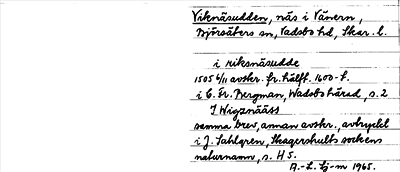 Viknäsudden, näs i Vänern,
Björsäters sn, Vadsbo hd, Skar. l.
i riksnäsudde
1505 4/11 avskr. fr. hälft. 1600-t.
i E. Fr. Bergman, Wadsbo härad, s. 2
I Wigznääss
samma brev, annan avskr., avtryckt
i J. Sahlgren, Skagershults sockens
naturnamn, s. H5.
A.-L. Lj-m 1965.